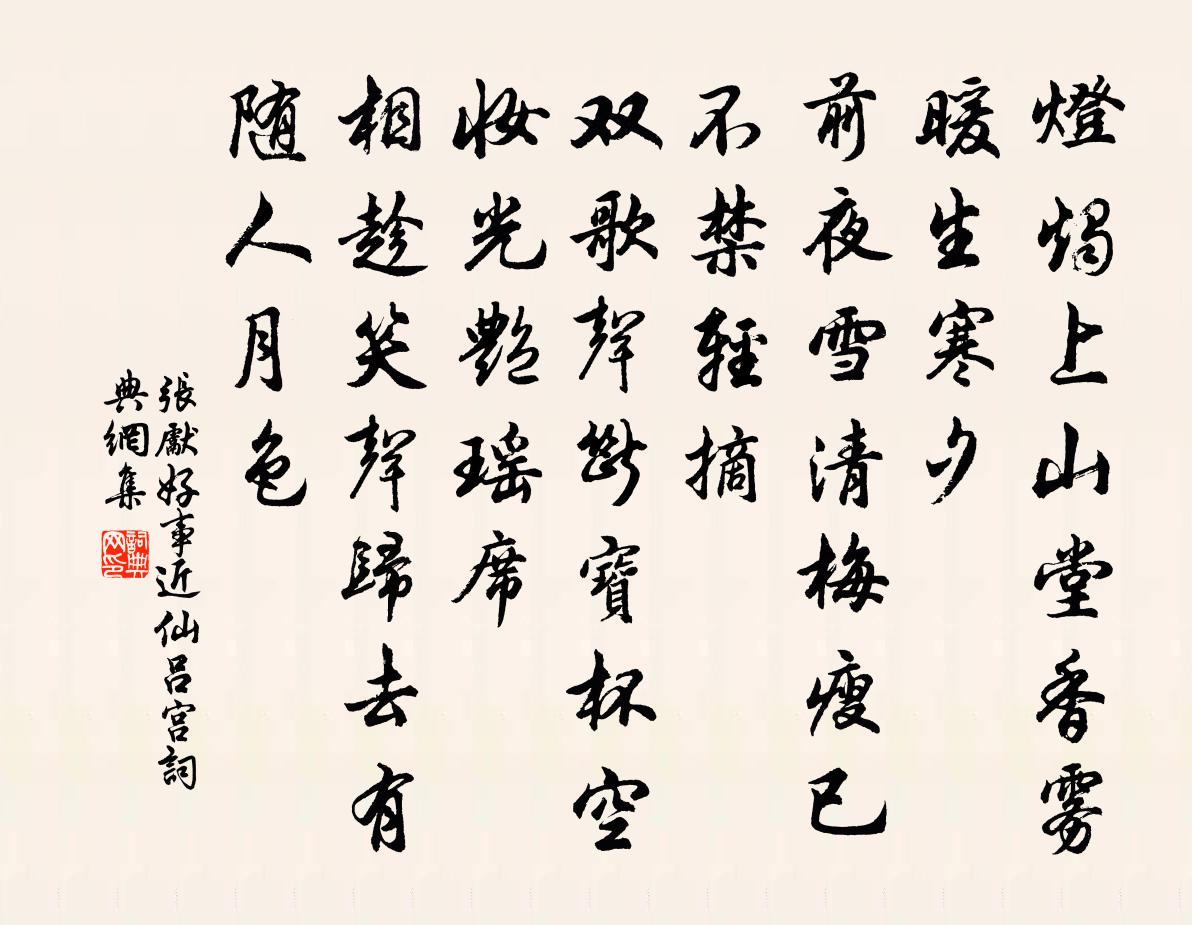 燈燭上山堂香雾
暖生寒夕
前夜雪清梅瘦已
不禁輕摘
双歌聲斷寶杯空
妝光艷瑶席
相趁笑聲歸去有
随人月色
張獻好事近仙呂宮詞
典網集
詞典网印